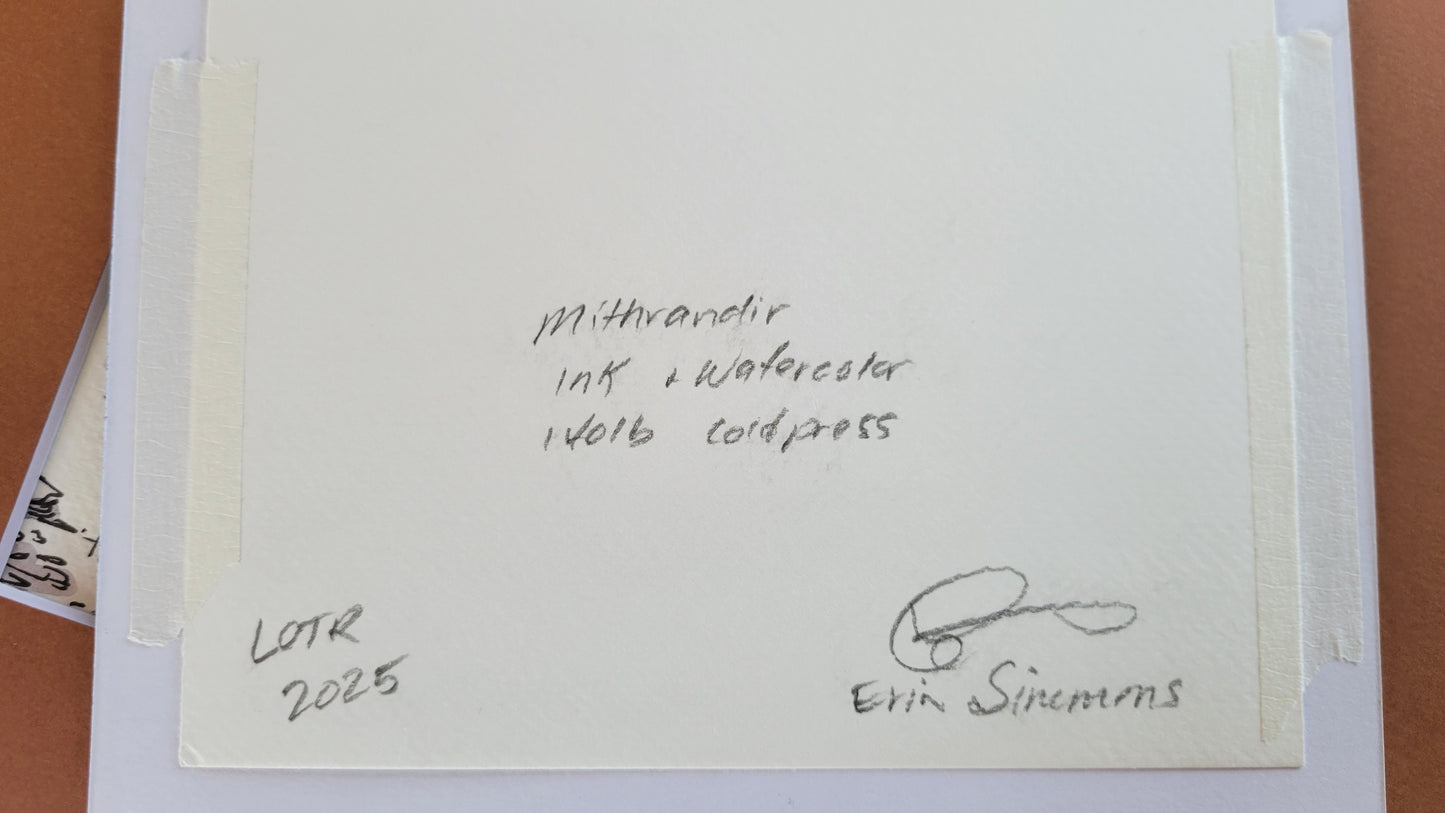 Mithrandir
Ink + Watercolor
140lb coldpress
LOTR
2025
Erin Simmons